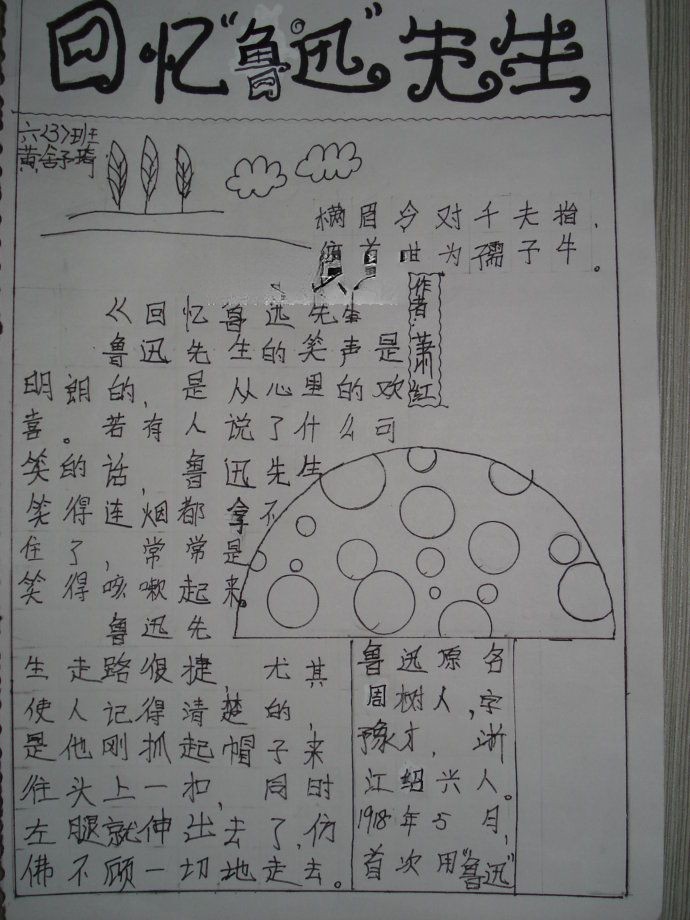 回忆“鲁迅”先生
六〈3〉班
黄舍予琦
横眉冷对千夫指，
俯首甘为孺子牛。
作者 萧红
《回忆鲁迅先生
鲁迅先生的笑声是
明朗的，是从心里的欢
喜。若有人说了什么可
笑的话，鲁迅先生
笑得连烟都拿不
住了，常常是
笑得咳嗽起来。
鲁迅先
生走路很捷，尤其
使人记得清楚的，
是他刚抓起帽子来
往头上一扣，同时
左腿就伸出去了，仿
佛不顾一切地走去。
鲁迅原名
周树人，字
豫才，浙
江绍兴人。
1918年5月，
首次用“鲁迅”